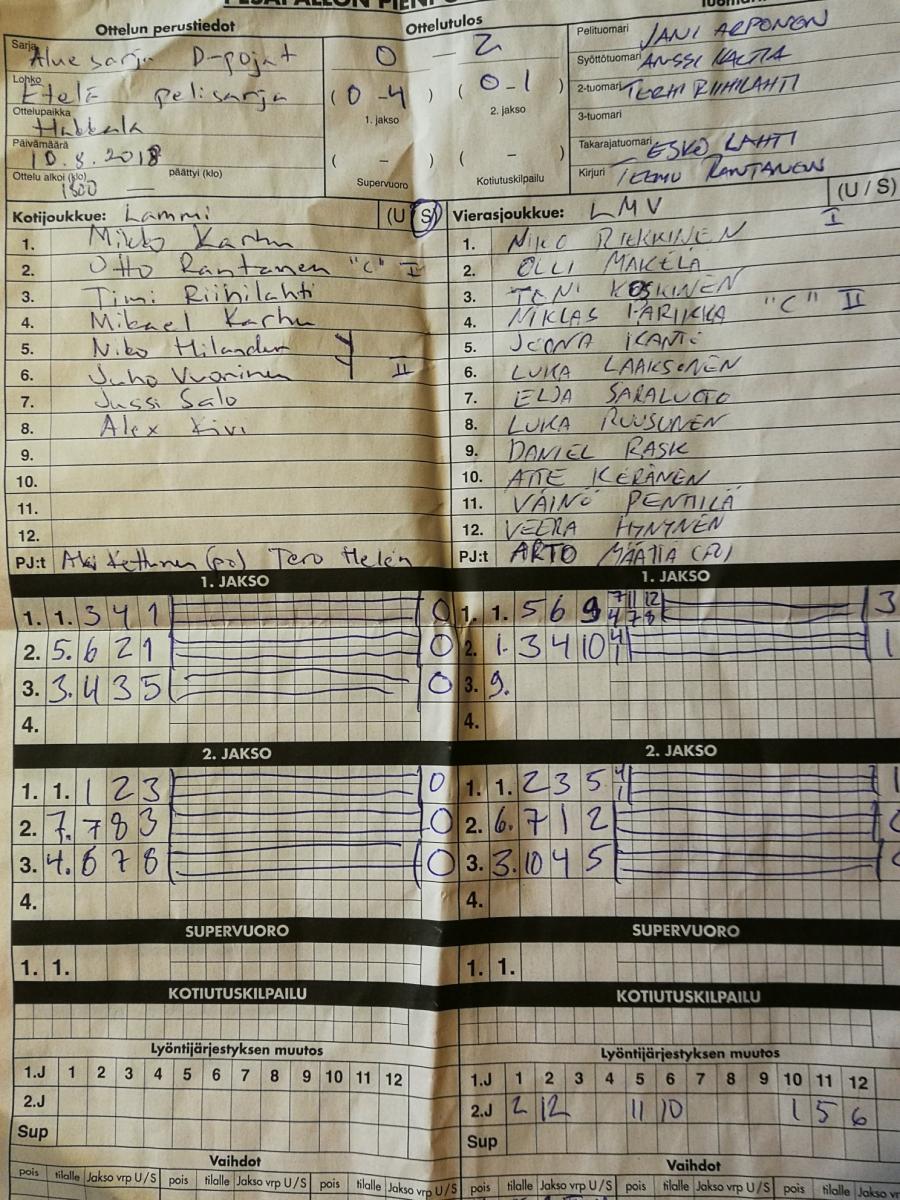 Ottelun perustiedot
Ottelutulos
Sarja Aluesarja D-pojat
0 – 2
Pelituomari JANI ARPONEN
Syöttötuomari ANSSI KALTIA
Lohko Etelä pelisarja
(0-4) (0-1)
1. jakso 2. jakso
2-tuomari TERHI RIIHILAHTI
Ottelupaikka Hakkala
3-tuomari
Päivämäärä 10.8.2018
( - ) ( - )
Takarajatuomari ESKO LAHTI
Ottelu alkoi (klo) 1800 — päättyi (klo)
Supervuoro Kotiutuskilpailu
Kirjuri TEEMU RANTANEN
Kotijoukkue: Lammi (U/S)
1. Mikko Karhu
2. Otto Rantanen "C" I
3. Timi Riihilahti
4. Mikael Karhu
5. Niko Hilander
6. Juho Vuorinen II
7. Jussi Salo
8. Alex Kivi
9.
10.
11.
12.
PJ:t Aki Kettunen (pj) Tero Helén
Vierasjoukkue: LMV (U / S)
1. NIKO RIEKKINEN I
2. OLLI MÄKELÄ
3. TENI KOSKINEN
4. NIKLAS PARIKKA "C" II
5. JOONA IKANTÖ
6. LUKA LAAKSONEN
7. ELJA SARALUOTO
8. LUKA RUUSUNEN
9. DANIEL RASK
10. ATTE KERÄNEN
11. VÄINÖ PENTTILÄ
12. VEERA HYNYNEN
PJ:t ARTO MÄÄTTÄ (PJ)
1. JAKSO
1. 1. 3 4 1 0
2. 5. 6 2 1 0
3. 3. 4 3 5 0
4.
2. JAKSO
1. 1. 1 2 3 0
2. 7. 7 8 3 0
3. 4. 6 7 8 0
4.
SUPERVUORO
1. 1.
KOTIUTUSKILPAILU
Lyöntijärjestyksen muutos
1.J 1 2 3 4 5 6 7 8 9 10 11 12
2.J
Sup
Vaihdot
pois tilalle Jakso vrp U/S pois tilalle Jakso vrp U/S
1. JAKSO
1. 1. 5 6 9 7 11 12 3
4 7 8
2. 1. 3 4 10 4 1
1
3. 9.
4.
2. JAKSO
1. 1. 2 3 5 4 1
1
2. 6. 7 1 2
3. 3. 10 4 5
4.
SUPERVUORO
1. 1.
KOTIUTUSKILPAILU
Lyöntijärjestyksen muutos
1.J 1 2 3 4 5 6 7 8 9 10 11 12
2.J 2 12 11 10 1 5 6
Sup
Vaihdot
pois tilalle Jakso vrp U/S pois tilalle Jakso